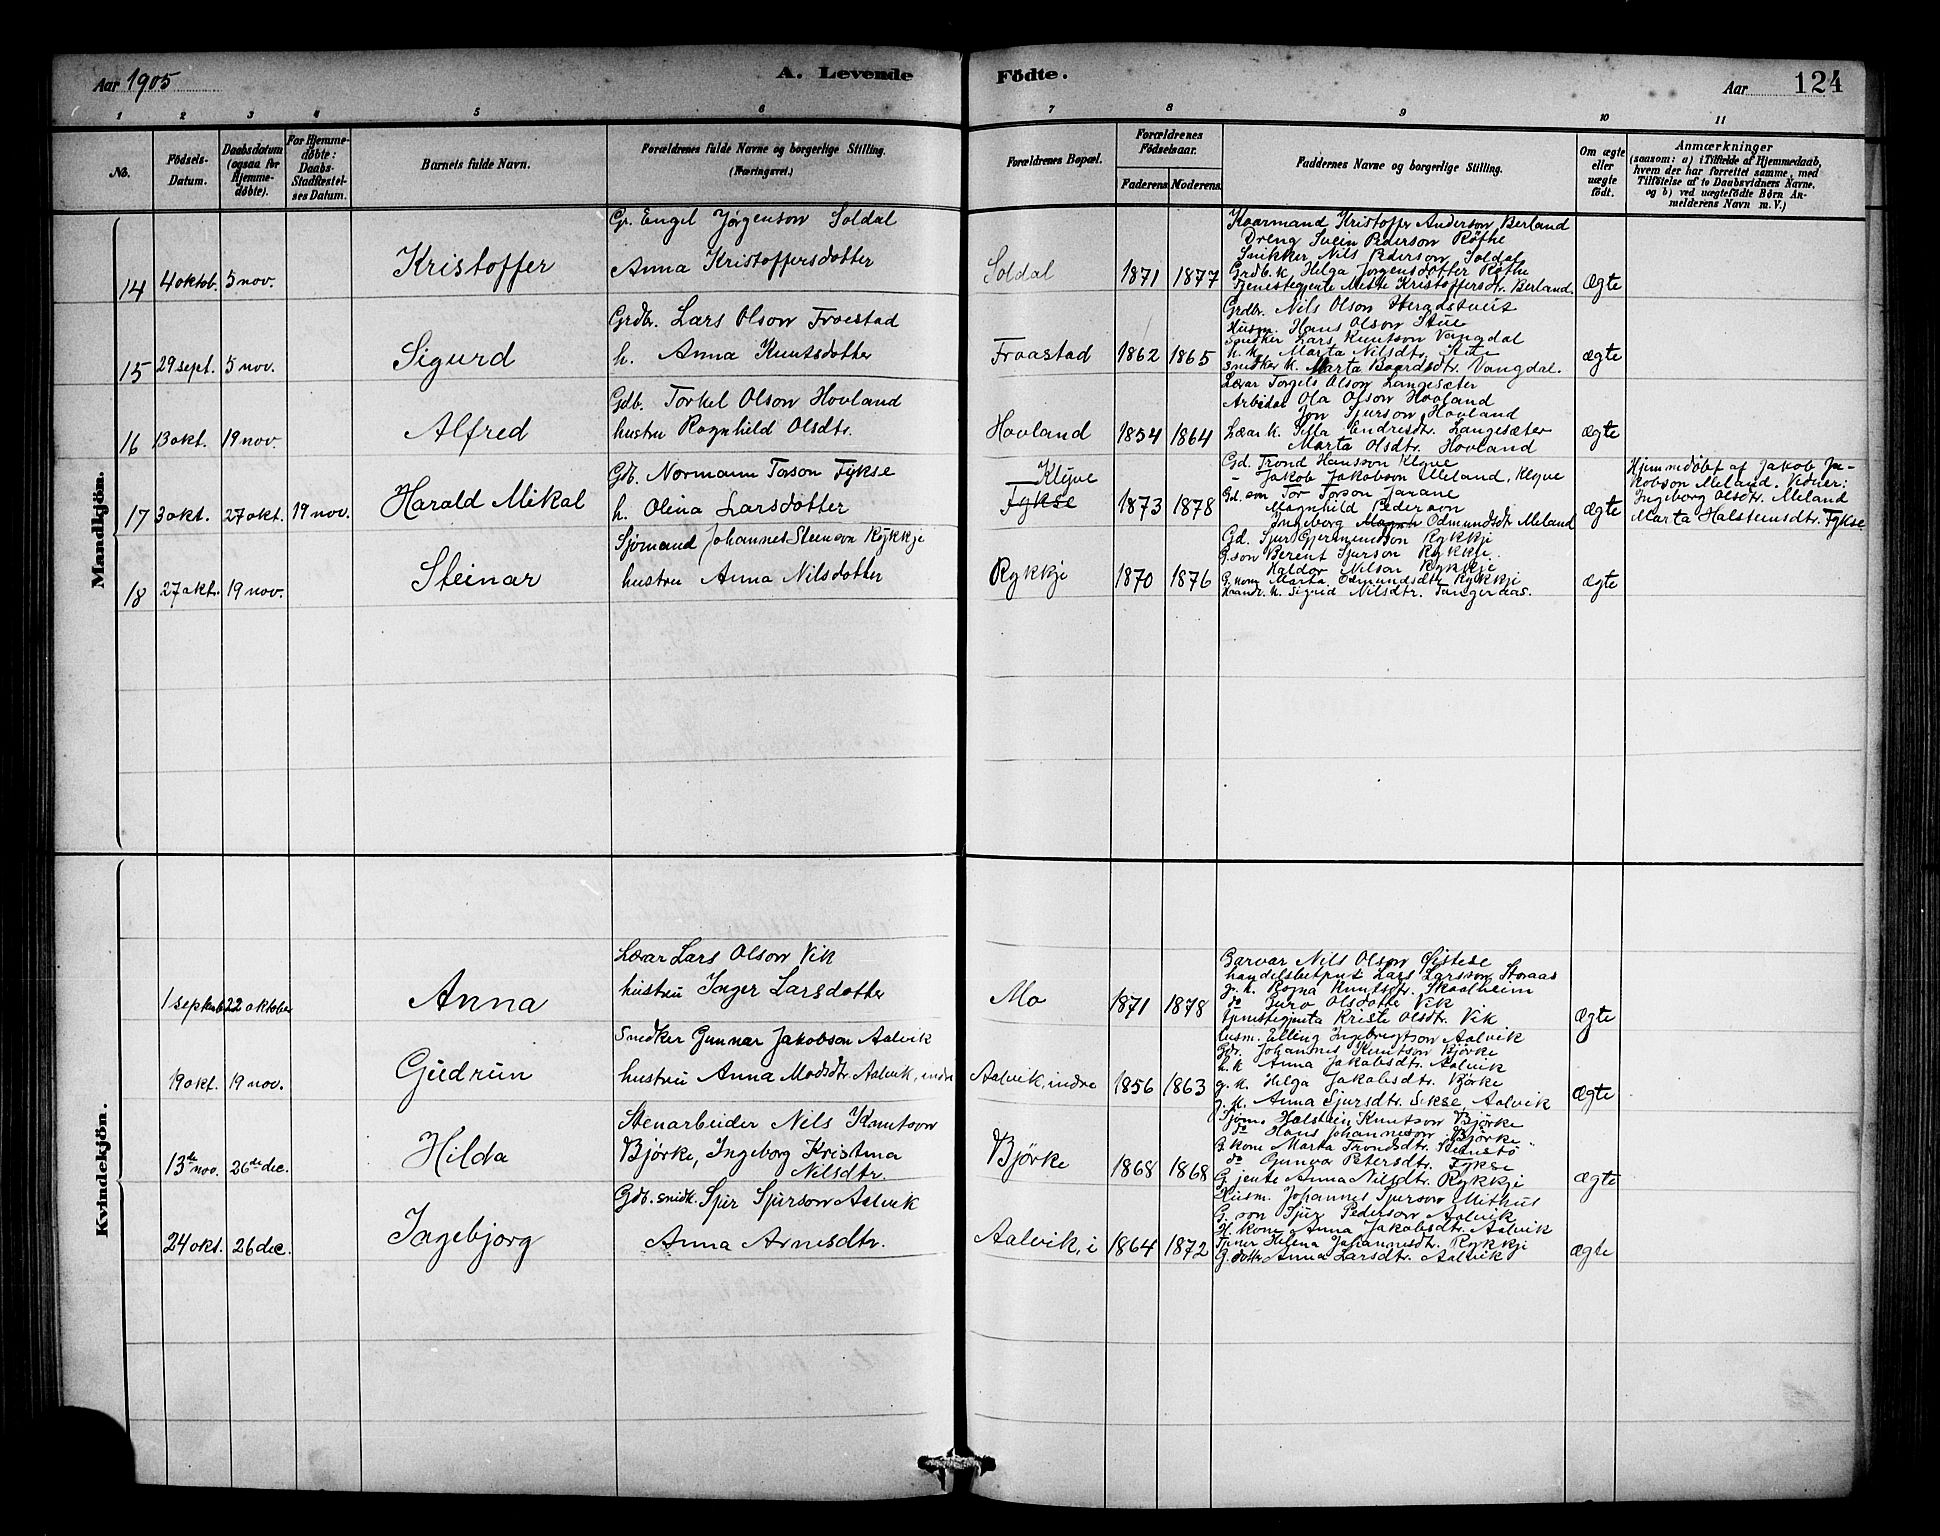 Aar 1905
A. Levende
Födte.
Aar
124
1 2 3 4 5 6 7 8 9 10 11
No.
Födsels-
Datum.
Daabsdatum
(ogsaa for
Hjemme-
döbte).
For Hjemme-
döbte:
Daabs-
Stadfæstel-
ses Datum.
Barnets fulde Navn.
Forældrenes fulde Navne og borgerlige Stilling.
(Næringsvei.)
Forældrenes Bopæl.
Forældrenes
Födselsaar.
Faderens
Moderens
Faddernes Navne og borgerlige Stilling.
Om ægte
eller
uægte
födt.
Anmærkninger
(saasom: a) i Tilfælde af Hjemmedaab,
hvem der har forrettet samme, med
Tilföielse af to Daabsvidners Navne,
og b) ved uægtefödte Börn An-
melderens Navn m. V.)
Mandkjön.
14 4 oktob. 5 nov.
Kristoffer
Gr. Engel Jørgenson Soldal
Anna Kristoffersdotter
Soldal
1871 1877
Kaarmand Kristoffer Anderson Berland
Dreng Svein Pederson Røthe
Snikker Nils Pederson Soldal
Grdb. k. Helga Jørgensdotter Røthe
Tjenestegjente Mette Kristoffersdtr. Berland.
Ægte
15 29 sept. 5 nov.
Sigurd
Grdbr. Lars Olson Froestad
h. Anna Knutsdotter
Froastad
1862 1865
Grdbr. Nils Olson Heradstveit
Husm. Hans Olson Stue
Snidker Lars Knutson Vangdal
h. k. Marta Nilsdtr. Stue
Snidker k. Marta Baardsdtr. Vangdal.
ægte
16 13 okt. 19 nov.
Alfred
Gdb. Torkel Olson Hovland
hustru Ragnhild Olsdtr.
Hovland
1854 1864
Lærar Torgels Olson Langesæter
Arbeider Ola Olson Hovland
Jon Sjurson Hovland
Lærar k. Silla Endresdtr. Langesæter
Marta Olsdtr. Hovland
ægte
17 3 okt. 27 okt. 19 nov.
Harald Mikal
Gdb. Normann Torson Fykse
h. Olina Larsdotter
Klyve
Fykse
1873 1878
Gd. Trond Hansson Klyve
" Jakob Jakobson Meland, Klyve
Gd. son Tor Torson Jarane
Magnhild Pederson
Ingeborg Magnh Odmundsdtr Meland
ægte
Hjemmedøbt af Jakob Ja-
kobson Meland. Vidner:
Ingeborg Olsdtr. Meland
Marta Halsteinsdtr. Fykse
18 27 okt. 19 nov.
Steinar
Sjømand Johannes Steinson Rykkje
hustru Anna Nilsdotter
Rykkje
1870 1876
Gd. Sjur Gjermundson Rykkje
G. son Berent Sjurson Rykkje.
Haldor Nilson Rykkje
G. kone Marta Odmundsdtr Rykkje
Handl. k. Sigrid Nilsdtr. Tangeraas.
ægte
Kvindekjön.
1 september 22 oktober
Anna
Lærar Lars Olson Vik
hustru Inger Larsdotter
Mo
1871 1878
Garvar Nils Olson Øistese
handelsbetjent Lars Larsson Storaas
g. k. Ragna Knutsdtr. Skaalheim
do Guro Olsdotter Vik
tjenestegjenta Kristi Olsdtr. Vik
Ægte
19 okt. 19 nov.
Gudrun
Snedker Gunnar Jakobson Aalvik
hustru Anna Madsdtr. Aalvik, indre
Aalvik, indre
1856 1863
husm. Elling Ingebrigtson Aalvik
Gdr. Johannes Knutson Bjørke
h. k Anna Jakobsdtr. Aalvik
g. k. Helga Jakobsdtr. Bjørke
g. k. Anna Sjursdtr. Sekse Aalvik
Ægte
13de nov. 26de dec.
Hilda
Stenarbeider Nils Knutson
Bjørke, Ingeborg Kristina
Nilsdtr.
Bjørke
1868 1868
Sjøm. Halstein Knutson Bjørke
do Hans Johanneson Bjørke
G. kone Marta Trondsdtr.
do Gunvor Petersdtr. Fykse
G. jente Anna Nilsdtr. Rykkje
Ægte
24 okt. 26 dec.
Ingebjørg
Gdb. snidk. Sjur Sjurson Aalvik
Anna Arnesdtr.
Aalvik, i
1864 1872
Husm. Johannes Sjurson Mithus
G. son Sjur Pederson Aalvik
H. kone Anna Jakobsdtr. Aalvik
Tjener Helena Johannesdtr. Rykkje
G. dotter Anna Larsdtr. Aalvik
ægte